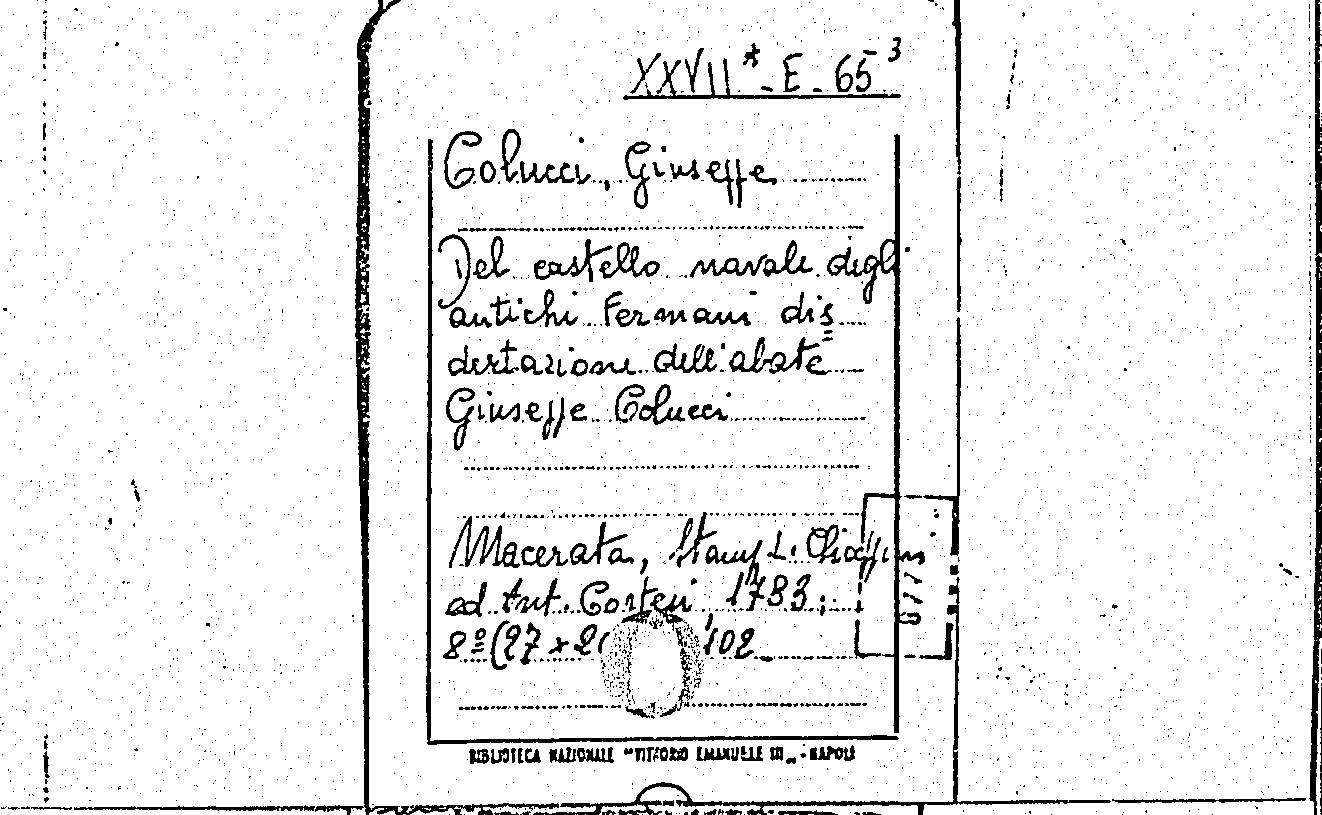 XXVII* - E - 65³
Colucci, Giuseppe
Del castello navale degli
antichi Fermani dis=
sertazione dell'abate
Giuseppe Colucci
Macerata, Stamp. L. Chiappini
ed Ant. Cortesi, 1783;
8º (27 x 102
BIBLIOTECA NAZIONALE "VITTORIO EMANUELE III" - NAPOLI